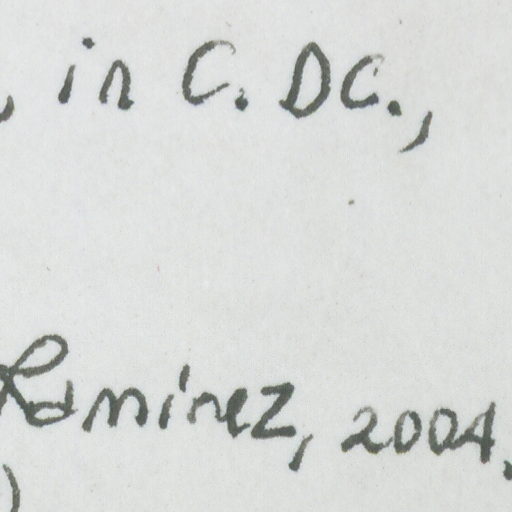 , in C. DC.,
Ramirez, 2004.
)